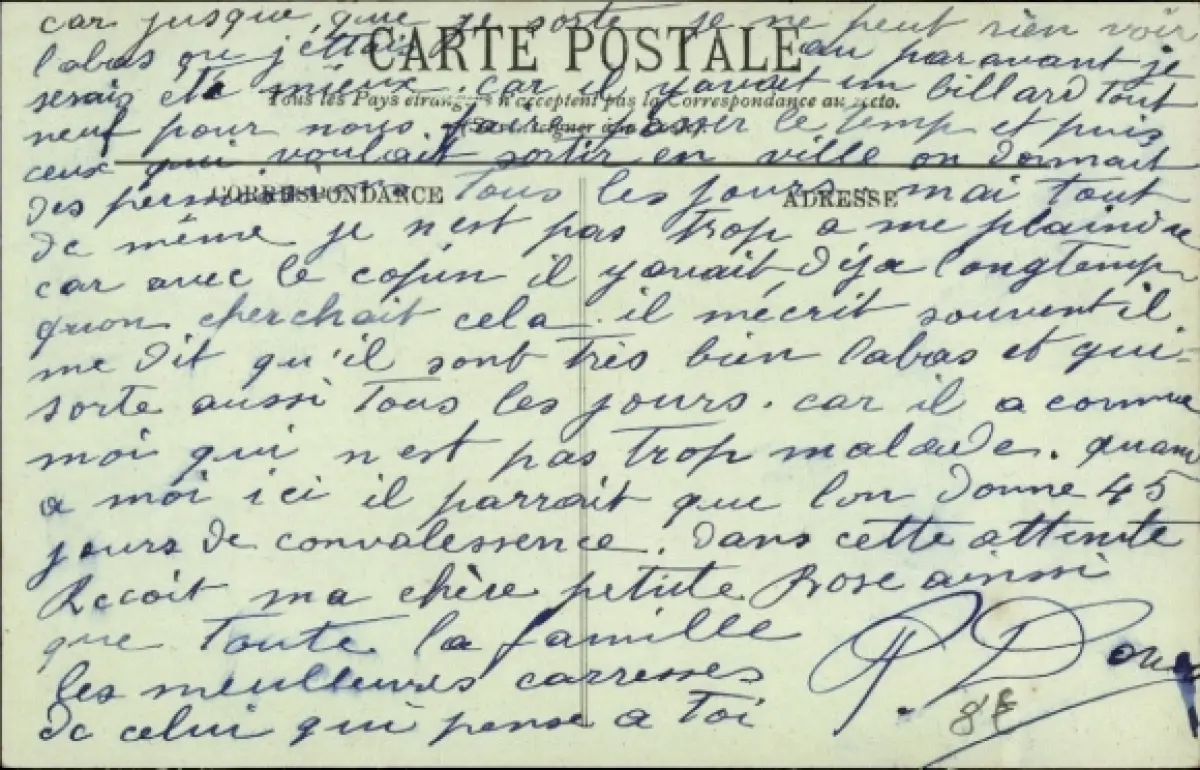 car jusque que je sorte je ne peut rien voir
CARTE POSTALE
labas ou j'éttais au paravant je
serais été mieux. car il y avait un billard tout
Tous les Pays étrangers n'acceptent pas la Correspondance au recto.
neuf pour nous faire passer le temp et puis
ceux qui voulait sortir en ville on donnait
CORRESPONDANCE
ADRESSE
des tous les jours. mai tout
de même je n'est pas trop a me plaindre
car avec le copin il y avait déja longtemp
qu'on cherchait cela. il mécrit souvent il
me dit qu'il sont très bien labas et qui
sorte aussi tous les jours. car il a comme
moi qui n'est pas trop malade. quand
a moi ici il parrait que lon donne 45
jours de convalessence. dans cette attente
Recoit ma chère petite Rose ainsi
que toute la famille
les meulleures carresses
de celui qui pense a toi